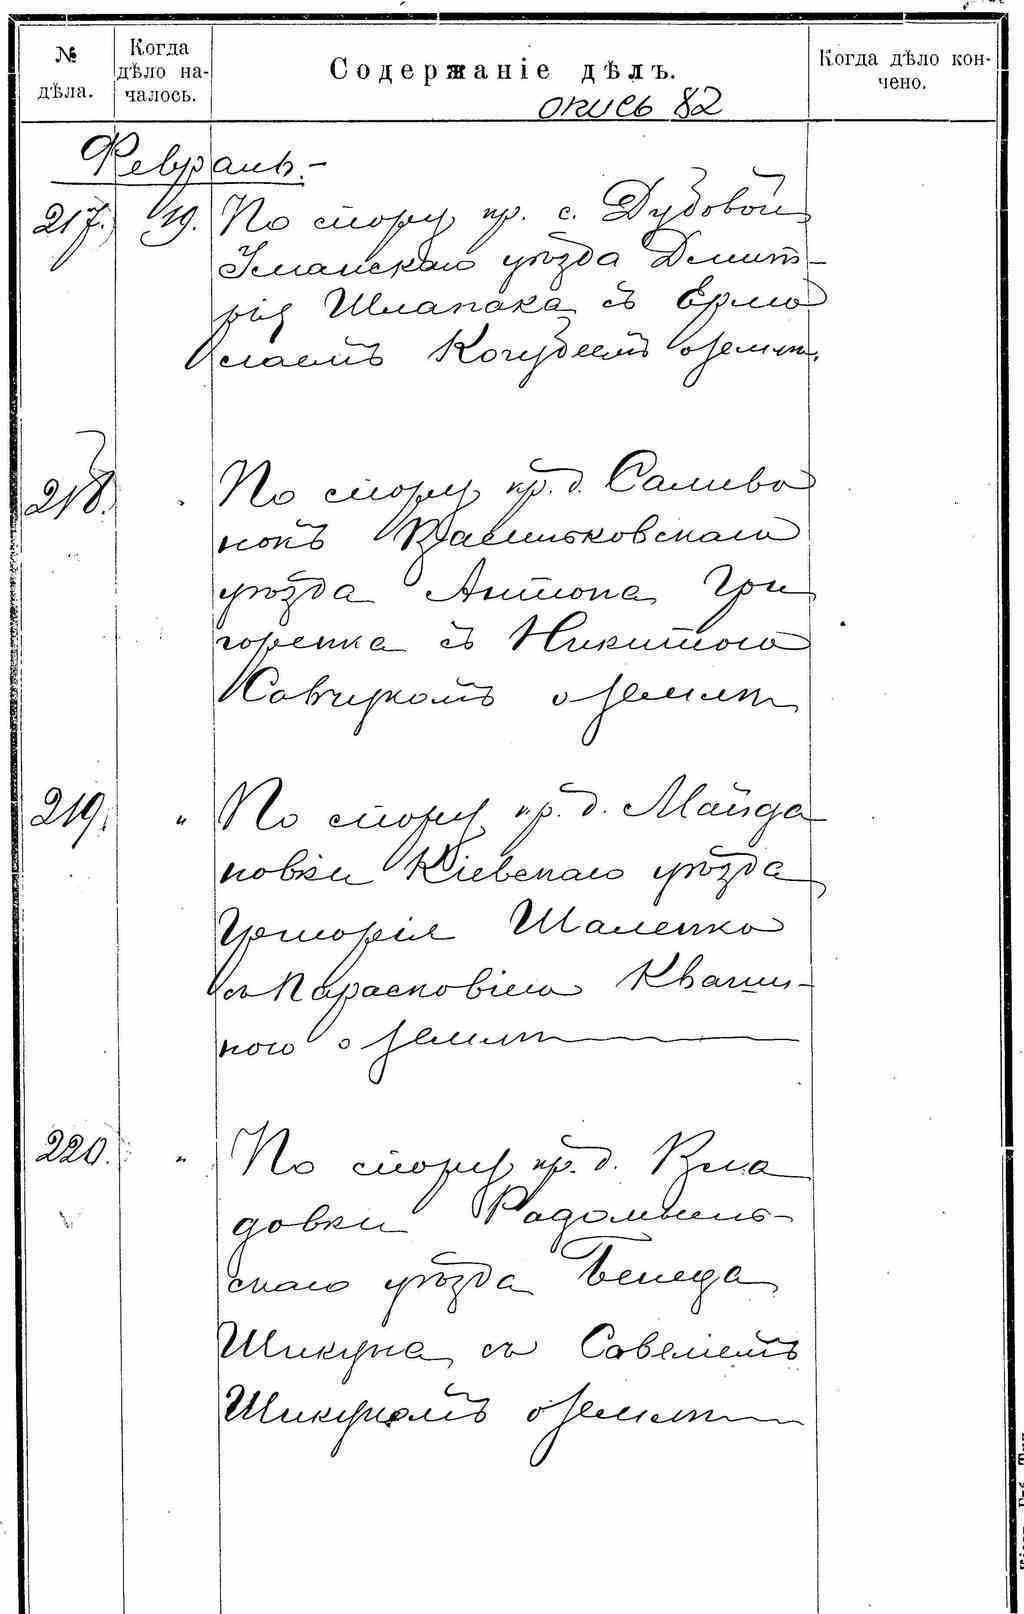 № дѣла.
Когда дѣло на-
чалось.
Содержаніе дѣлъ.
Когда дѣло кон-
чено.
опись 82
Февраль.-
217. 19. По спору кр. с. Дубовой
Уманскаго уѣзда Дмит-
рія Шлапака съ Ермо
лаемъ Кочубеемъ о земли.
218. " По спору кр. д. Саливо
нокъ Васильковскаго
уѣзда Антона Гри
горенка съ Никитою
Савчукомъ о земли
219. " По спору кр. д. Майда
новки Кіевскаго уѣзда
Григорія Шаленко
съ Парасковіею Кваши-
ною о земли
220. " По спору кр. д. Вла
довки Радомысль-
скаго уѣзда Бенеда
Шикуна съ Савеліемъ
Шикуномъ о земли